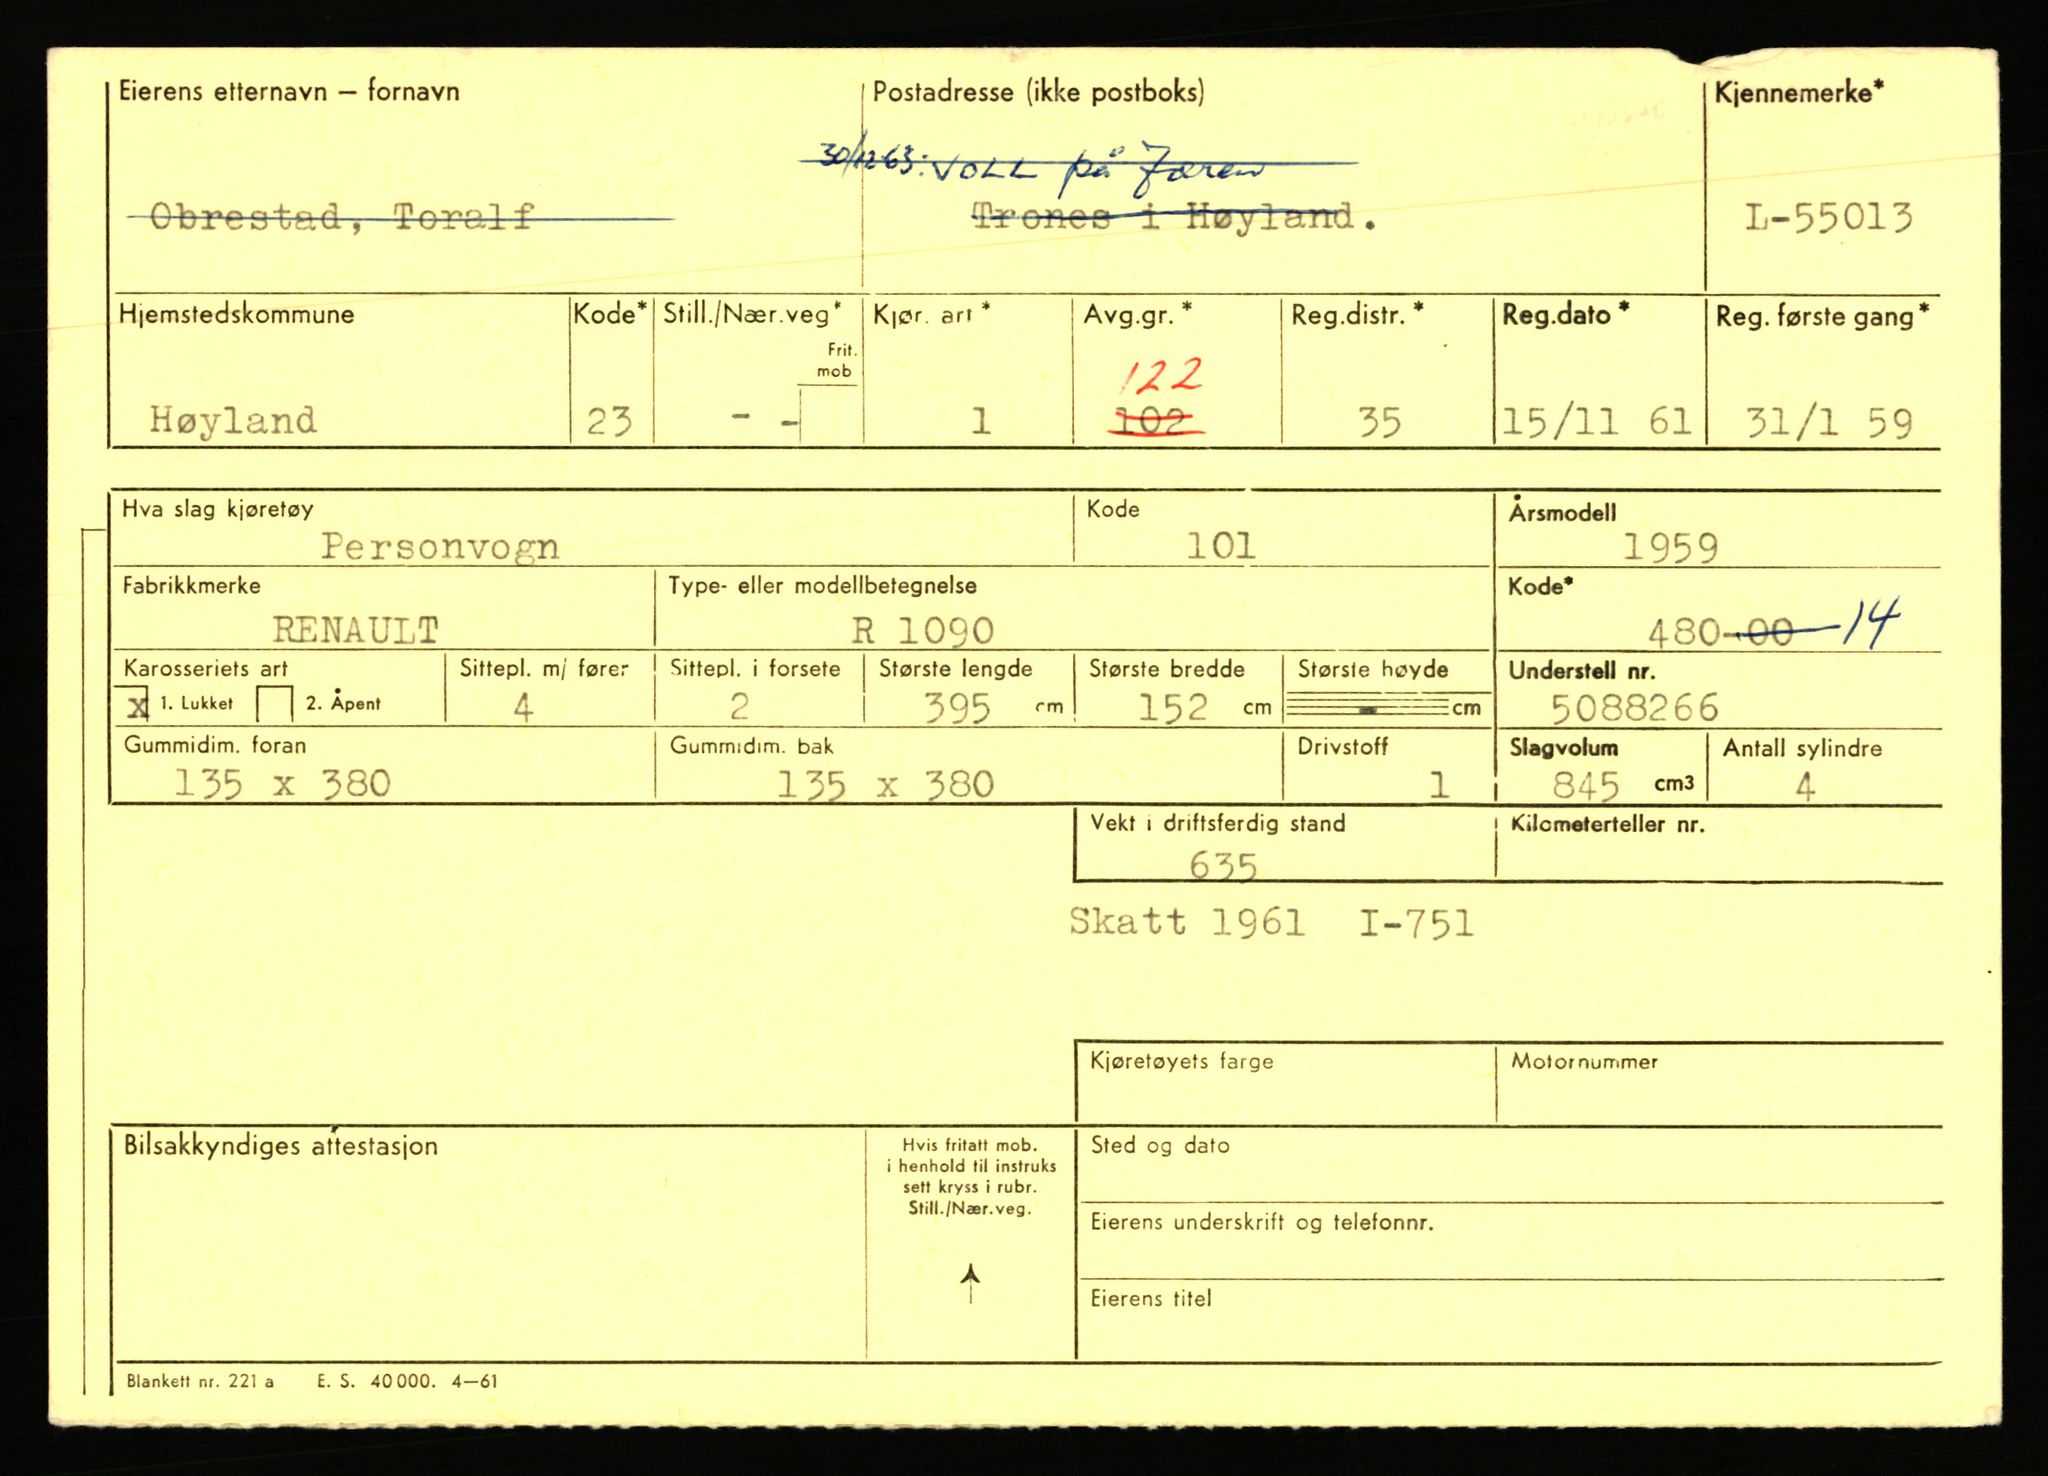 Eierens etternavn – fornavn Postadresse (ikke postboks) Kjennemerke*
30/12-63: VOLL på Jæren
Obrestad, Toralf Trones i Høyland. L-55013
Hjemstedskommune Kode* Still./Nær.veg* Kjør. art* Avg.gr.* Reg.distr.* Reg.dato* Reg. første gang*
Frit.
mob
122
Høyland 23 - - 1 102 35 15/11 61 31/1 59
Hva slag kjøretøy Kode Årsmodell
Personvogn 101 1959
Fabrikkmerke Type- eller modellbetegnelse Kode*
RENAULT R 1090 480-00 14
Karosseriets art Sittepl. m/ fører Sittepl. i forsete Største lengde Største bredde Største høyde Understell nr.
x 1. Lukket 2. Åpent 4 2 395 cm 152 cm - cm 5088266
Gummidim. foran Gummidim. bak Drivstoff Slagvolum Antall sylindre
135 x 380 135 x 380 1 845 cm3 4
Vekt i driftsferdig stand Kilometerteller nr.
635
Skatt 1961 I-751
Kjøretøyets farge Motornummer
Bilsakkyndiges attestasjon Hvis fritatt mob. Sted og dato
i henhold til instruks
sett kryss i rubr.
Still./Nær.veg.
Eierens underskrift og telefonnr.
Eierens titel
Blankett nr. 221 a E. S. 40 000. 4–61